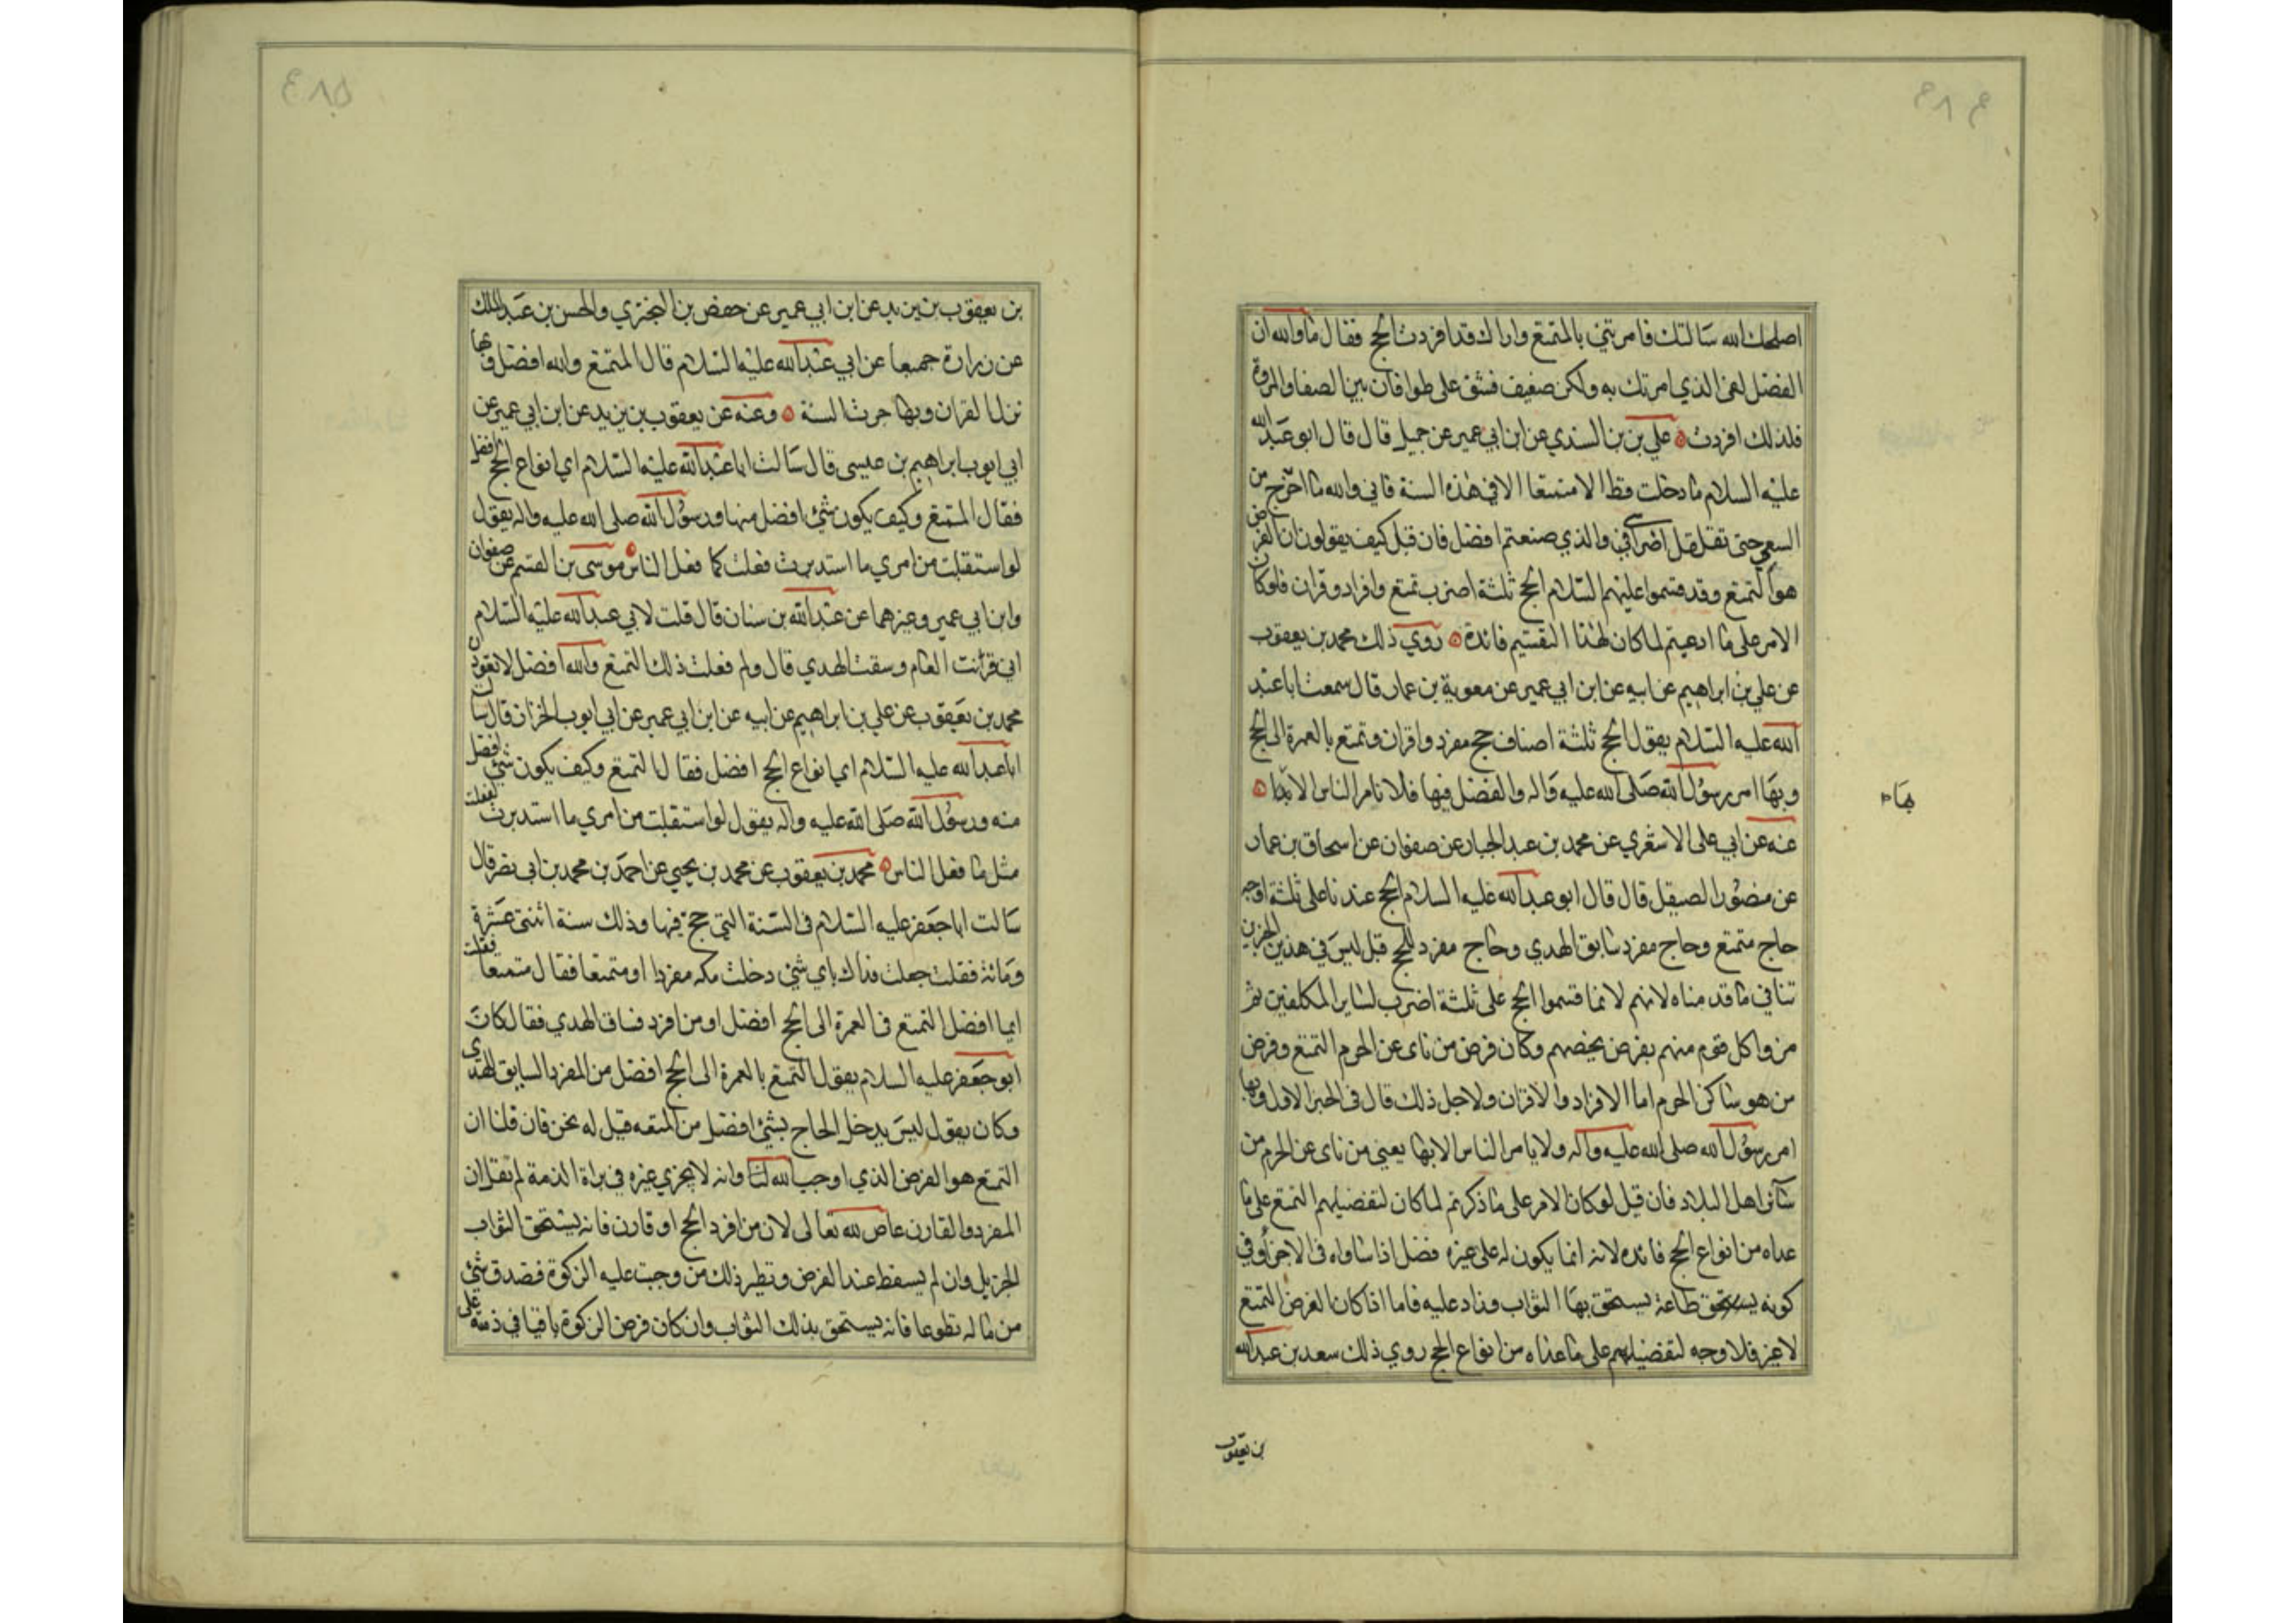 ۴۸۴
اصلحك الله سالتك فامرتني بالتمتع واراك قد افردت الحج فقال اما والله ان
الفضل لفي الذي امرتك به ولكن ضعيف فشق على طوافان بين الصفا والمروة
فلذلك افردت علي بن بن السندي عن ابن ابي عمير عن جميل قال قال ابو عبد الله
عليه السلام ما دخلت قط الا متمتعا الا في هذه السنة فاني والله ما اخرج من
السعي حتى تقلقل اضراسي والذي صنعتم افضل فان قيل كيف يقولون ان الفرض
هو التمتع وقد قسموا عليهم السلام الحج ثلثة اضرب تمتع وافراد وقران فلو كان
الامر على ما ادعيتم لما كان لهذا التقسيم فائدة روي ذلك محمد بن يعقوب
عن علي بن ابراهيم عن ابيه عن ابن ابي عمير عن معوية بن عمار قال سمعت ابا عبد
الله عليه السلام يقول الحج ثلثة اصناف حج مفرد واقران وتمتع بالعمرة الى الحج
وبها امر رسول الله صلى الله عليه واله والفضل فيها فلا نامر الناس الا بها
بها
عنه عن ابي على الاشعري عن محمد بن عبد الجبار عن صفوان عن اسحاق بن عمار
عن منصور الصيقل قال قال ابو عبد الله عليه السلام الحج عندنا على ثلثة اوجه
حاج متمتع وحاج مفرد سابق الهدي وحاج مفرد للحج قيل ليس في هذين الخبرين
تنافي ما قدمناه لانهم لانما قسموا الحج على ثلثة اضرب لساير المكلفين ثم
مزوا كل قوم منهم بفرض يخصهم وكان فرض من ناى عن الحرم التمتع وفرض
من هو ساكن الحرم اما الافراد والاقران ولاجل ذلك قال في الخبر الاول وبها
امر رسول الله صلى الله عليه واله ولا يامر الناس الا بها يعني من ناى عن الحرم من
سائر اهل البلاد فان قيل لو كان الامر على ما ذكرتم لما كان لتفضيلهم التمتع على ما
عداه من انواع الحج فائده لانه انما يكون له على غيره فضل اذا ساواه في الاجزأ وفي
كونه طاعة يستحق بها الثواب وزاد عليه فاما اذا كان الفرض التمتع
لا غير فلا وجه لتفضيلهم على ما عداه من انواع الحج روي ذلك سعد بن عبد الله
بن يعقوب
۴۸۵
بن يعقوب بن يزيد عن ابن ابي عمير عن حفص بن البختري والحسن بن عبد الملك
عن زرارة جميعا عن ابي عبد الله عليه السلام قال المتمتع والله افضل وبها
نزل القران وبها جرت السنة وعنه عن يعقوب بن يزيد عن ابن ابي عمير عن
ابي ايوب ابراهيم بن عيسى قال سالت ابا عبد الله عليه السلام اي انواع الحج افضل
فقال المتمتع وكيف يكون شئ افضل منها ورسول الله صلى الله عليه واله يقول
لو استقبلت من امري ما استدبرت فعلت كما فعل الناس موسى بن القسم عن صفوان
وابن ابي عمير وغيرهما عن عبد الله بن سنان قال قلت لابي عبد الله عليه السلام
اني قرنت العام وسقت الهدي قال ولم فعلت ذلك التمتع والله افضل لا تعودن
محمد بن يعقوب عن علي بن ابراهيم عن ابيه عن ابن ابي عمير عن ابي ايوب الخزاز قال سالت
ابا عبد الله عليه السلام اي انواع الحج افضل فقال التمتع وكيف يكون شئ افضل
منه ورسول الله صلى الله عليه واله يقول لو استقبلت من امري ما استدبرت لفعلت
مثل ما فعل الناس محمد بن يعقوب عن محمد بن يحيى عن احمد بن محمد بن ابي نصر قال
سالت ابا جعفر عليه السلام في السنة التي حج فيها وذلك سنة اثنتي عشرة
ومائة فقلت جعلت فداك باي شئ دخلت مكه مفردا او متمتعا فقال متمتعا فقلت
ايما افضل التمتع في العمرة الى الحج افضل او من افرد فساق الهدي فقال كان
ابو جعفر عليه السلام يقول التمتع بالعمرة الى الحج افضل من المفرد السايق للهدى
وكان يقول ليس يدخل الحاج بشئ افضل من المتعه قيل له نحن فان قلنا ان
التمتع هو الفرض الذي اوجب الله لنا وانه لا يجزي غيره في براة الذمة لم نقل ان
المفرد والقارن عاص لله تعالى لان من افرد الحج او قارن فانه يستحق الثواب
الجزيل وان لم يسقط عند الفرض ونظير ذلك من وجبت عليه الزكوة فصدق بشئ
من ماله تطوعا فانه يستحق بذلك الثواب وان كان فرض الزكوة باقيا في ذمته على